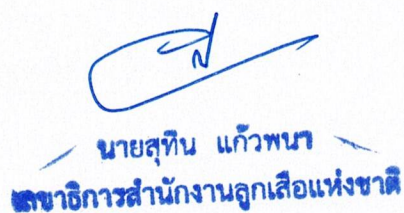 นายสุทิน แก้วพนา
เลขาธิการสำนักงานลูกเสือแห่งชาติ